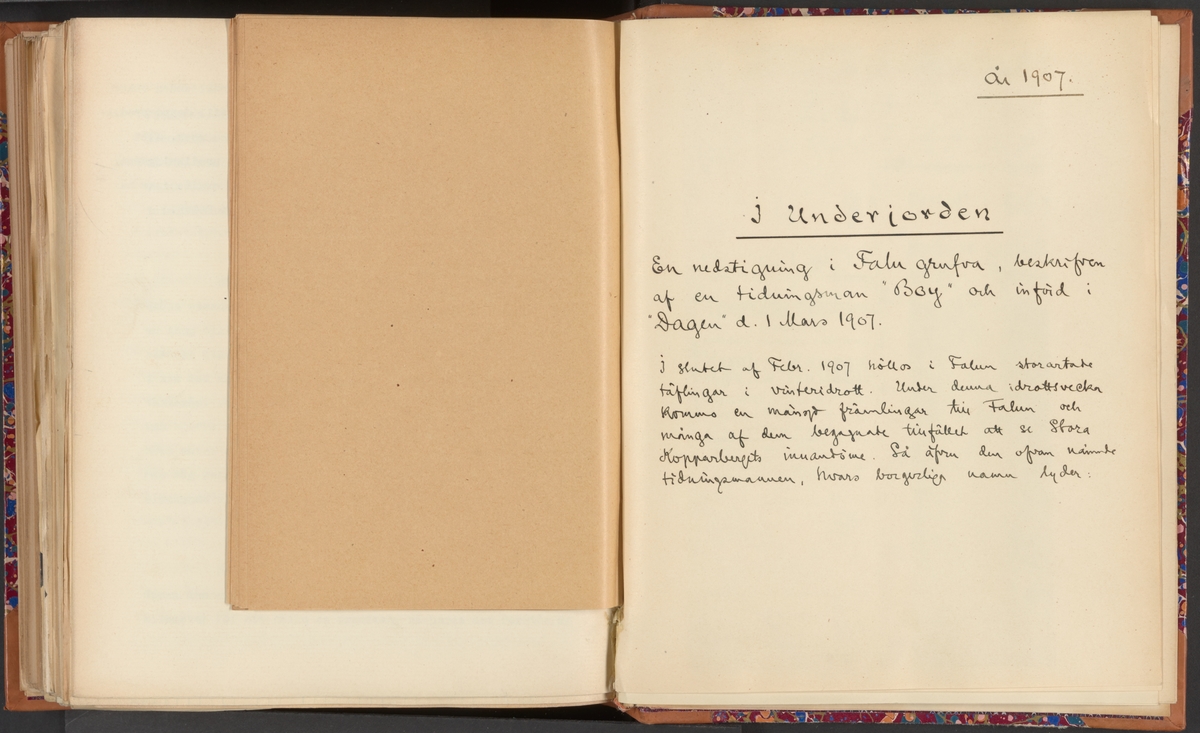 år 1907.
I Underjorden
En nedstigning i Falu grufva, beskrifven
af en tidningsman "Boy" och införd i
"Dagen" d. 1 Mars 1907.
I slutet af Febr. 1907 höllos i Falun storartade
täflingar i vinteridrott. Under denna idrottsvecka
kommo en mängd främlingar till Falun och
många af dem begagnade tillfället att se Stora
Kopparbergets innandöme. Så äfven den ofvan nämnde
tidningsmannen, hvars borgerliga namn lyder: